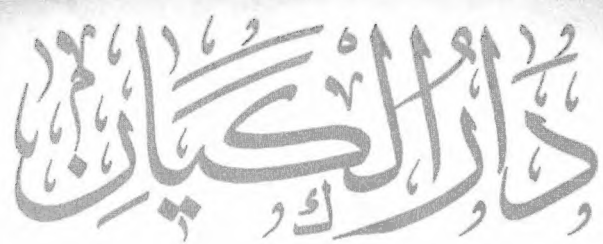 دَارُ الْكَيَانِ